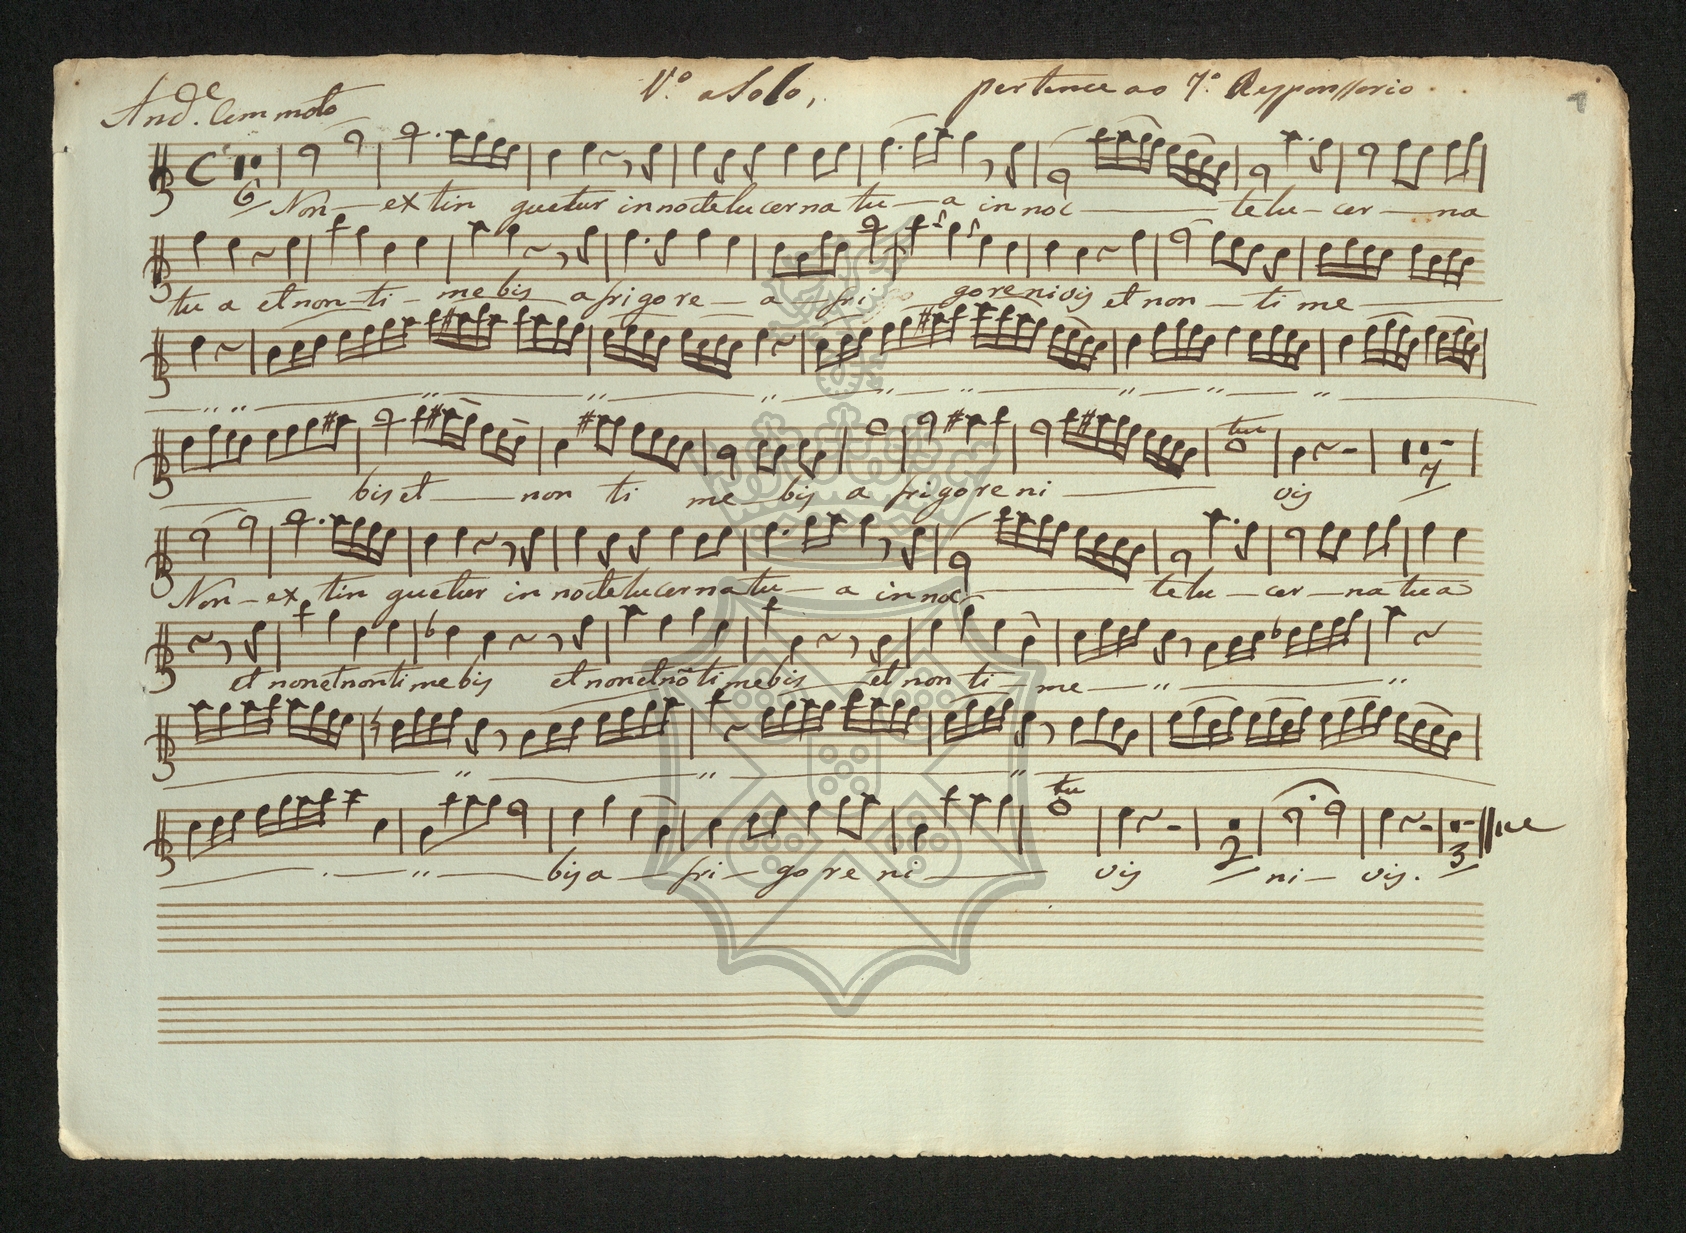 And.e Com moto
V.o a Solo,
pertence ao 7.o Responssorio.
6 Non — ex tin guetur in nocte lucerna tu — a in noc — te lu — cer — na
tu a et non — ti — me bis a frigo re — a fri gore nivis et non — ti me —
bis et — non ti me bis a frigore ni — vis 7
Non — ex tin guetur in nocte lucerna tu — a in noc — te lu — cer — na tu a
et non et non ti me bis et non et nõ ti me bis et non ti me —
bis a fri — go re ni — vis 2 ni — vis. 3